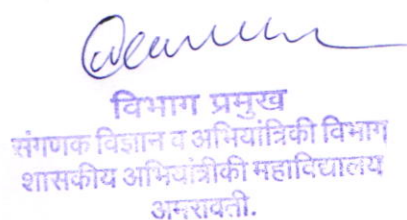 विभाग प्रमुख
संगणक विज्ञान व अभियांत्रिकी विभाग
शासकीय अभियांत्रीकी महाविद्यालय
अमरावती.